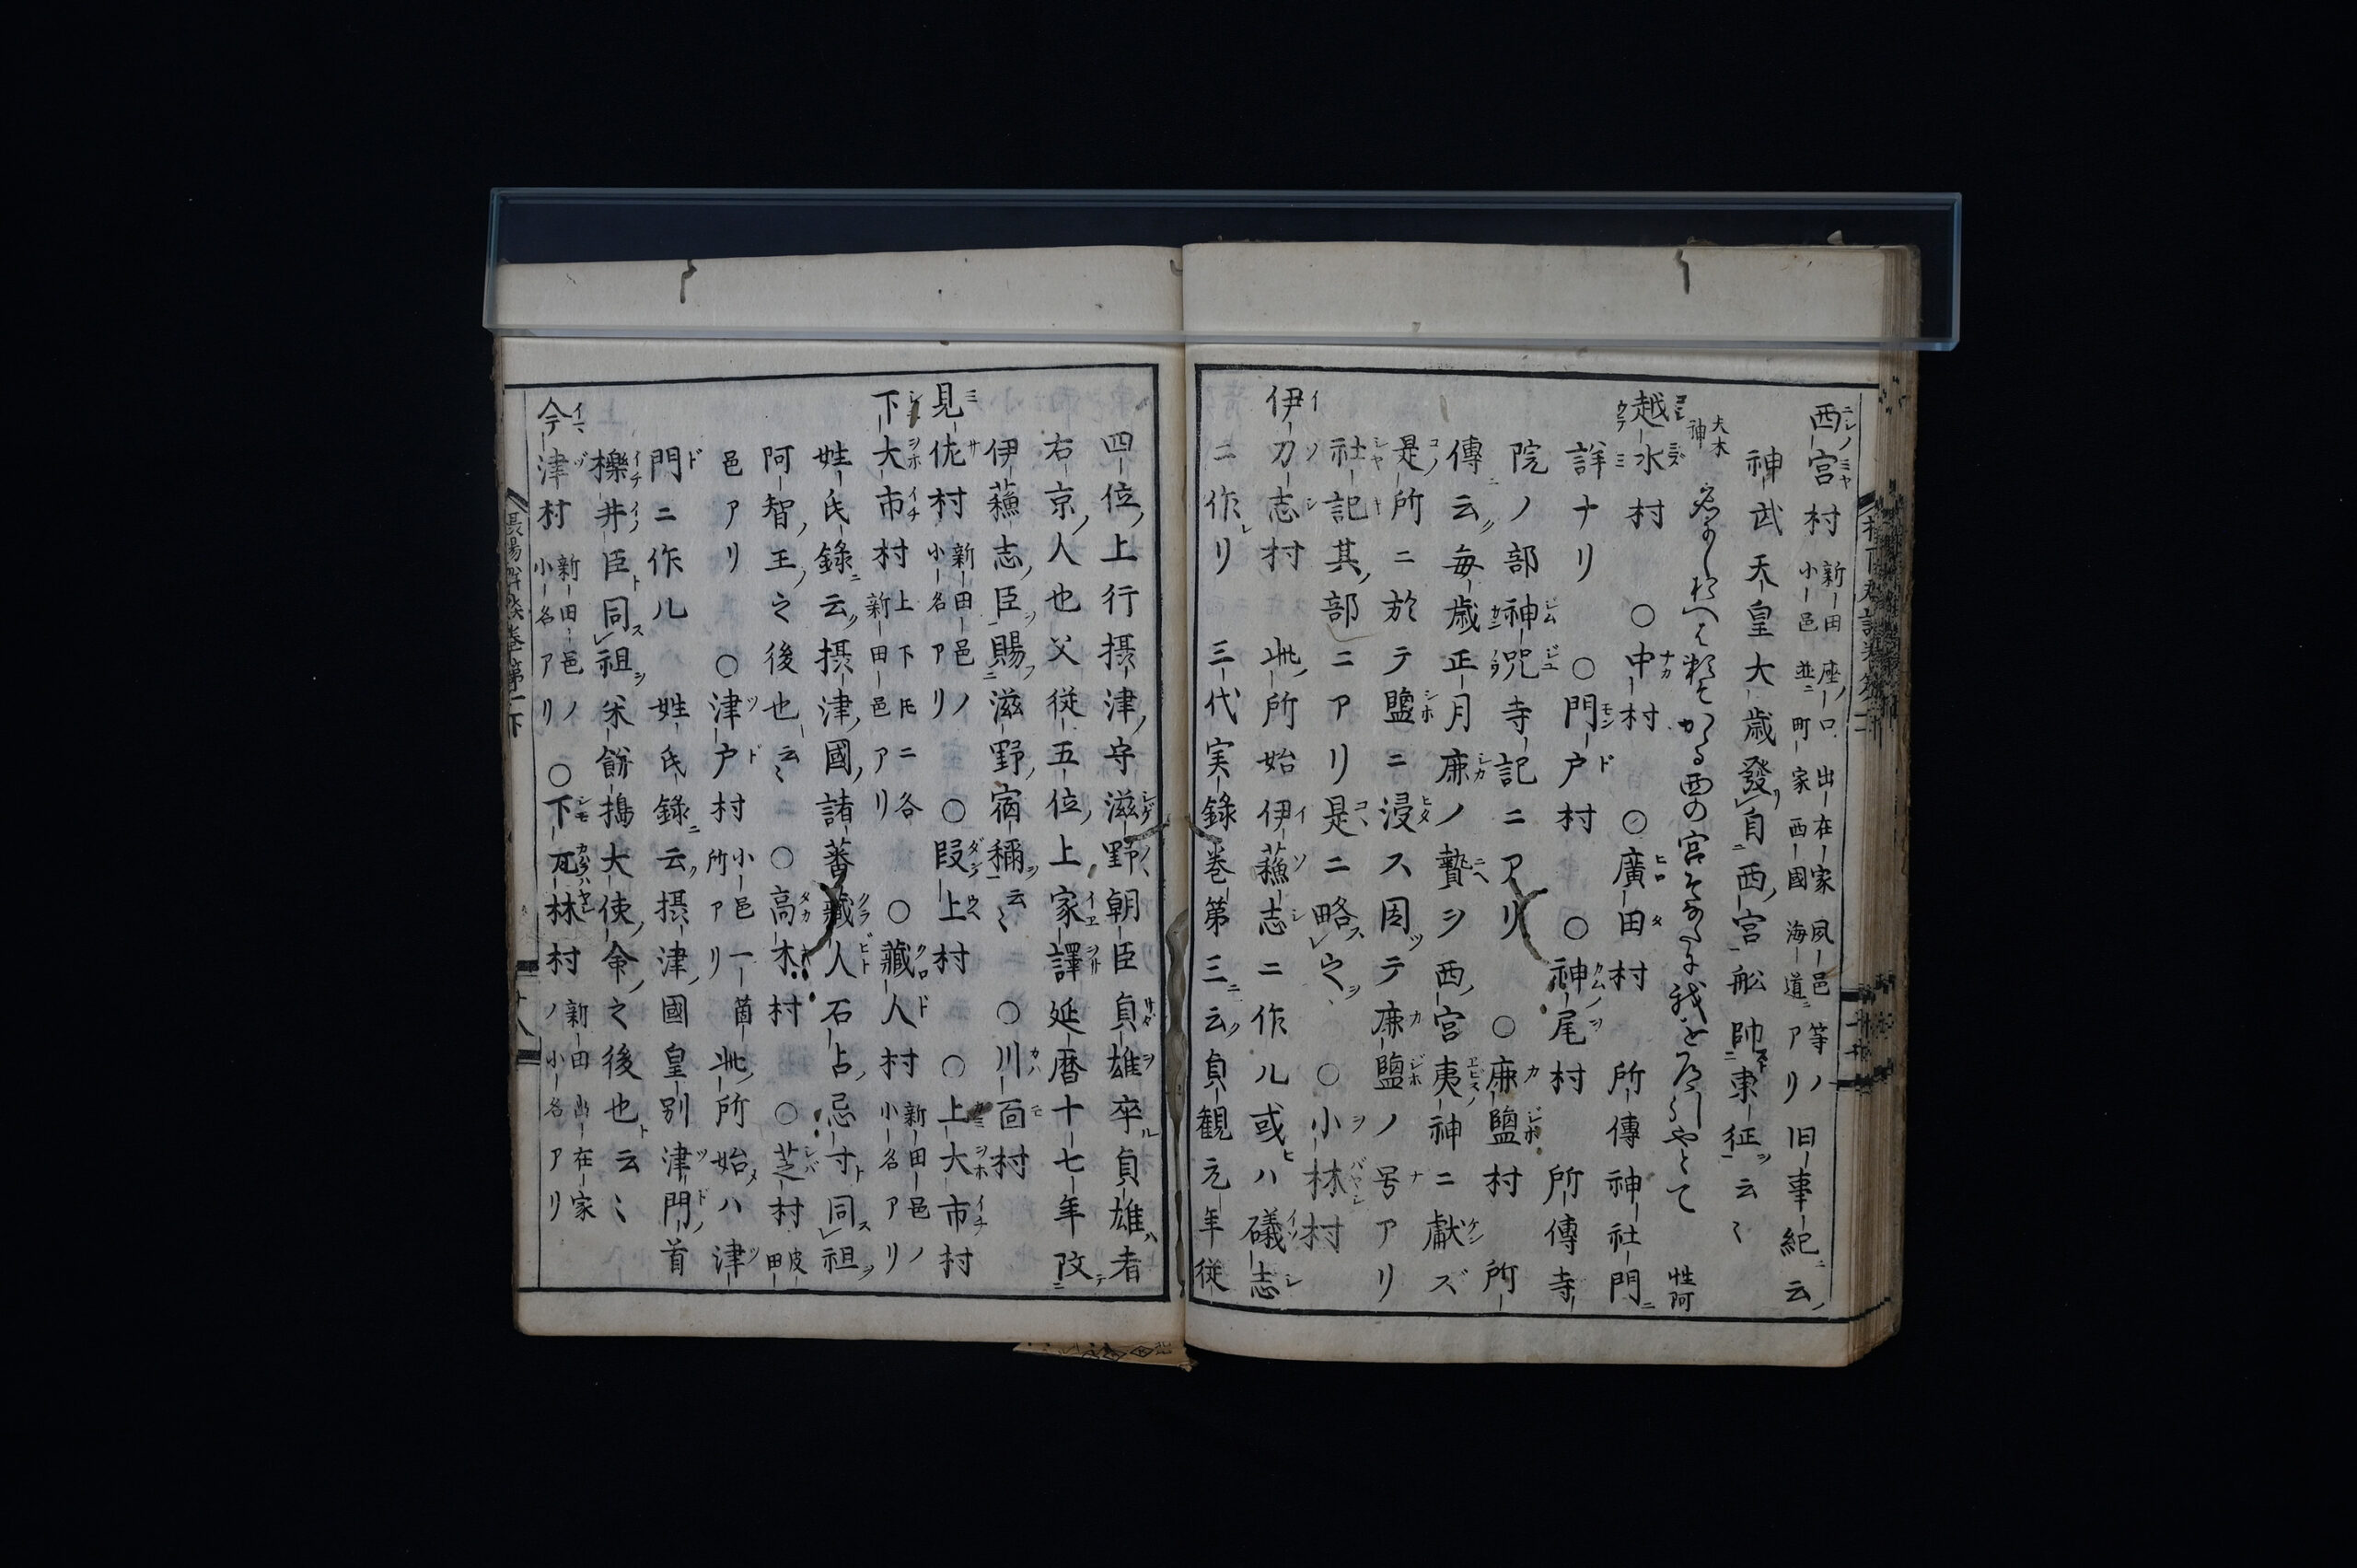 西宮村 新田 座口 出在家 夙邑 等ノ 小邑 並ニ 町家 西國 海道ニ アリ 旧事紀ニ云
神武天皇大歳發自西宮舩師東征云〻
越水村 ○中村 ○廣田村 所傳神社門ニ
詳ナリ ○門戸村 ○神尾村 所傳寺
院ノ部神呪寺記ニアリ ○鹿塩村 所
傳云毎歳正月鹿ノ贄ヲ西宮夷神ニ獻ズ
是所ニ於テ鹽ニ浸ス因テ鹿鹽ノ号アリ
社記其部ニアリ是ニ略之 ○小林村
伊刀志村 此所始伊蘓志ニ作ル或ハ礒志
ニ作リ 三代実錄巻第三云貞観元年従
四位上行摂津守滋野朝臣貞雄卒貞雄者
右京人也父従五位上家譯延暦十七年改
伊蘓志臣賜滋野宿禰云〻 ○川面村
見佐村 新田邑ノ小名アリ ○段上村 ○上大市村
下大市村 上下圧ニ各新田邑アリ ○藏人村 新田邑ノ小名アリ
姓氏錄云摂津國諸蕃藏人石占忌寸同祖
阿智王之後也云〻 ○高木村 ○芝村 皮田
邑アリ ○津戸村 小邑一箇所アリ 此所始ハ津
門ニ作ル 姓氏錄云摂津國皇別津門首
櫟井臣同祖米餅搗大使命之後也云〻
今津村 新田邑ノ小名アリ ○下瓦林村 新田出在家ノ小名アリ